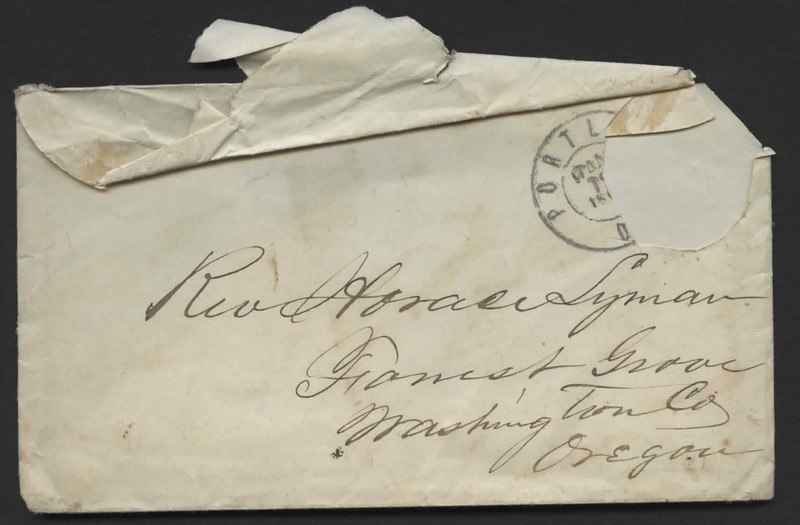 PORTL
Rev Horace Lyman
Forrest Grove
Washington Co
Oregon